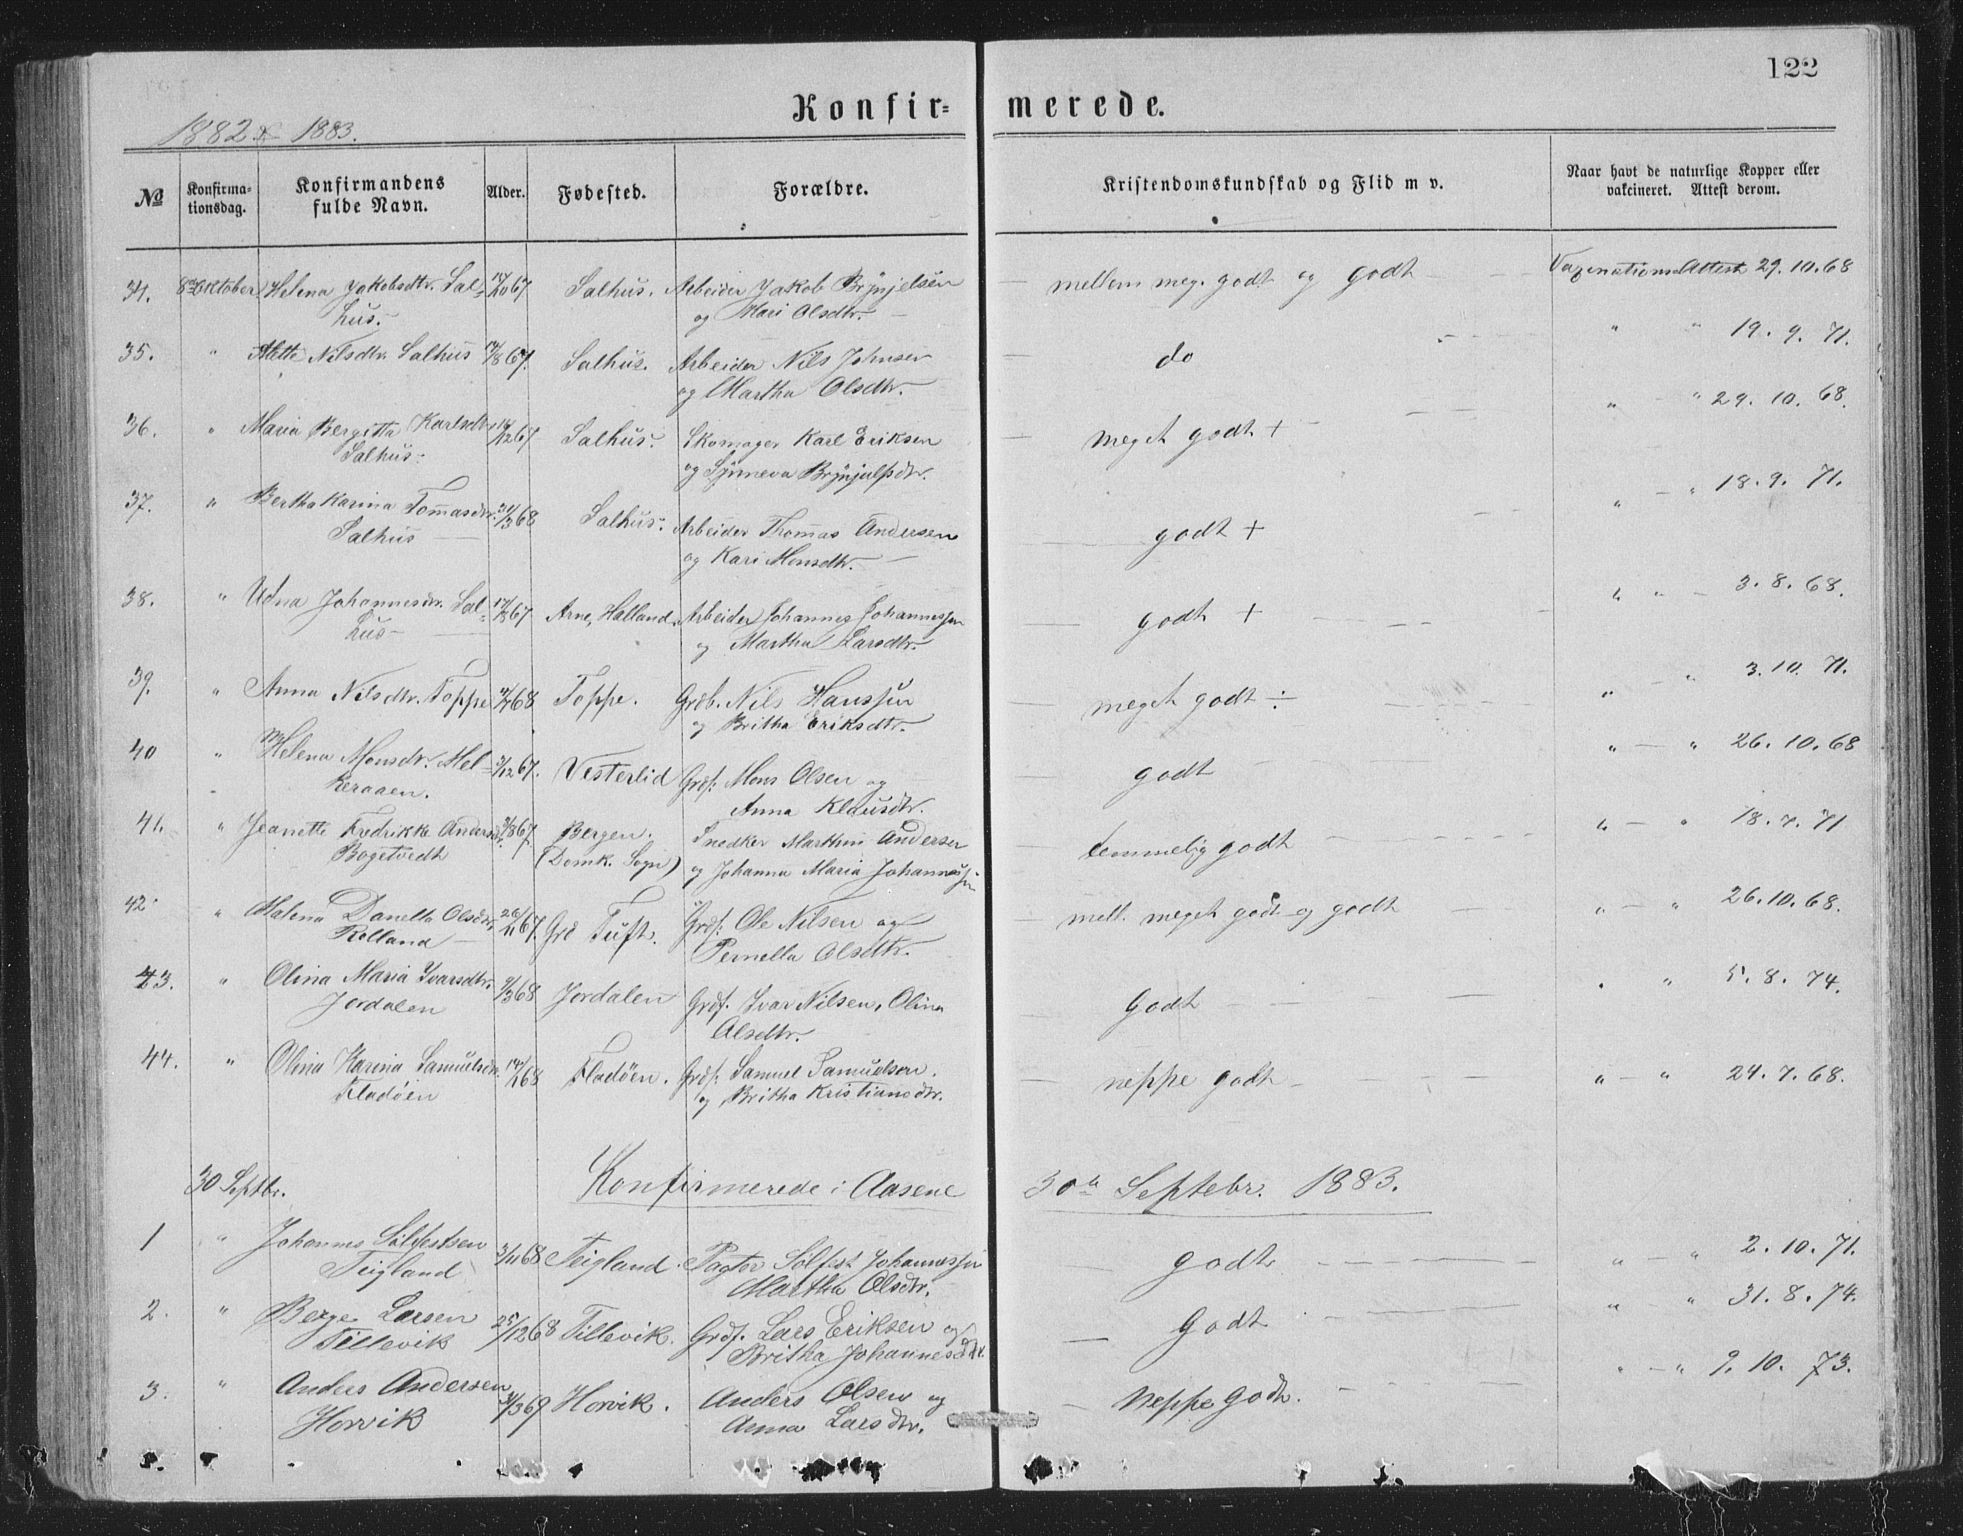 122
Konfir- merede.
1882 & 1883.
№ Konfirma-tionsdag. Konfirmandens fulde Navn. Alder. Fødested. Forældre. Kristendomskundskab og Flid m v. Naar havt de naturlige Kopper eller vakcineret. Attest derom.
34. 8de Oktober Helena Jakobsdtr. Sal- /10 67 Salhus. Arbeider Jakob Brynjelsen mellem meg. godt og godt Vaxinations Attest 29.10.68
hus. og Mari Olsdtr.
35. " Alette Nilsdtr. Salhus /8 67. Salhus. Arbeider Nils Johnsen do " " 19.9.71.
og Martha Olsdtr.
36. " Maria Bergitta Karlsdtr /12 67 Salhus. Skomager Karl Eriksen meget godt + " " 29.10.68.
Salhus. og Synneva Brynjulfsdtr.
37. " Bertha Karina Tomasdtr. /3 68 Salhus. Arbeider Thomas Andersen godt + " " 18.9.71.
Salhus og Kari Monsdtr.
38. " Udna Johannesdtr. Sal- 67 Arne, Halland Arbeider Johannes Johannessen godt + " " 3.8.68.
hus og Martha Larsdtr.
39. " Anna Nilsdtr. Toppe 68 Toppe. Grdb. Nils Hanssen meget godt ÷ " " 3.10.71.
og Britha Eriksdtr.
40 " Helena Monsdtr. Mel- /12 67. Vesterlid Grdf. Mons Olsen og godt " " 26.10.68
keraaen. Anna Klausdtr.
41. " Jeanette Fredrikke Andersd. /8 67. Bergen. Snedker Marthin Andersen temmelig godt " " 18.7.71
Bogetvedt (Domk. Sogn) og Johanna Maria Johannessen
42. " Malena Danella Olsdtr. 26/11 67. Grd Tuft. Grdf. Ole Nilsen og mell. meget godt og godt " " 26.10.68.
Rolland Pernella Olsdtr.
43. " Olina Maria Ivarsdtr. 9/3 68 Jordalen Grdf. Ivar Nilsen, Olina Godt " " 5.8.74.
Jordalen Olsdtr.
44. " Olina Karina Samuelsdtr. 14/1 68 Fladöen. Grdf. Samuel Samuelsen. neppe godt " " 24.7.68.
Fladöen og Britha Kristiansdtr.
30 Septbr. Konfirmerede i Aasene 30te Septebr. 1883.
1 " Johannes Sölfestsen 3/11 68 Teigland. Pagter Sölfest Johannessen godt " " 2.10.71.
Teigland Martha Olsdtr.
2. " Berge Larsen 25/12 68 Tillevik. Grdf. Lars Eriksen og Godt " " 31.8.74.
Tillevik Britha Johannesdtr.
3. " Anders Andersen /3 69 Horvik. Anders Olsen og neppe godt. " " 9.10.73.
Horvik Anna Larsdtr.